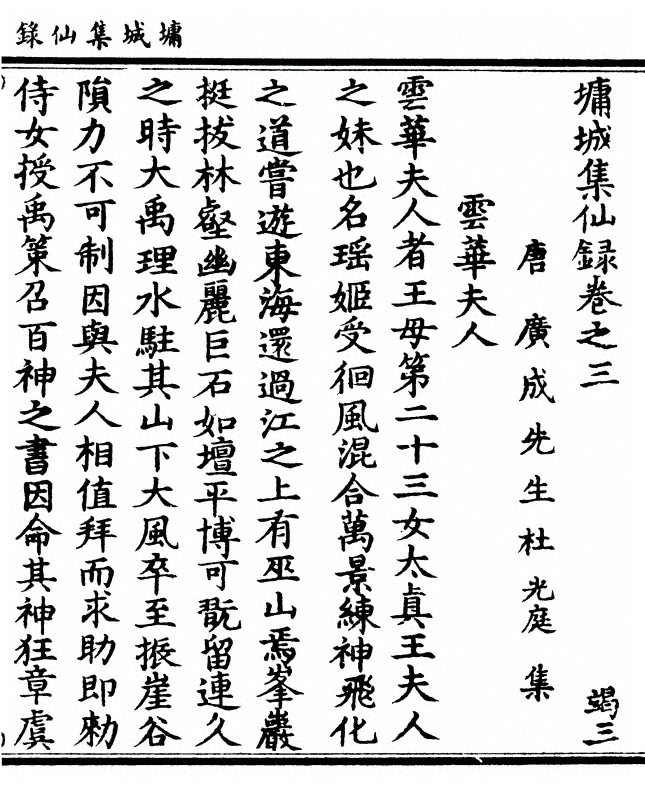 墉城集仙錄
墉城集仙録卷之三 竭三
唐廣成先生杜光庭集
雲華夫人
雲華夫人者王母第二十三女太真王夫人
之妹也名瑶姬受徊風混合萬景練神飛化
之道嘗遊東海還過江之上有巫山焉峯巖
挺拔林壑幽麗巨石如壇平博可翫留連久
之時大禹理水駐其山下大風卒至振崖谷
隕力不可制因與夫人相值拜而求助即勑
侍女授禹策召百神之書因命其神狂章虞